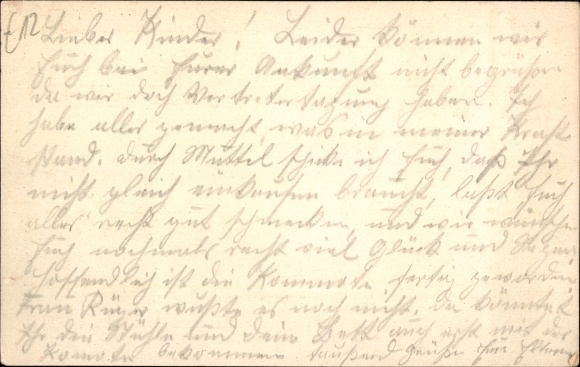 E12
Lieber Kinder! Leider können wir
Euch bei Eurer Ankunft nicht begrüßen
da wir doch Vertretertagung haben. Ich
habe alles gemacht, was in meiner Kraft
stand. Durch Muttel schicke ich Euch, daß Ihr
nicht gleich einkaufen braucht, laßt Euch
alles recht gut schmecken, und wir wünschen
Euch nochmals recht viel Glück und Segen
Hoffendlich ist die Kommote fertig geworden
Frau Rüger wußte es noch nicht, da könntet
Ihr die Stühle und dein Bett auch erst mit der
Komote bekommen tausend Grüße Eure